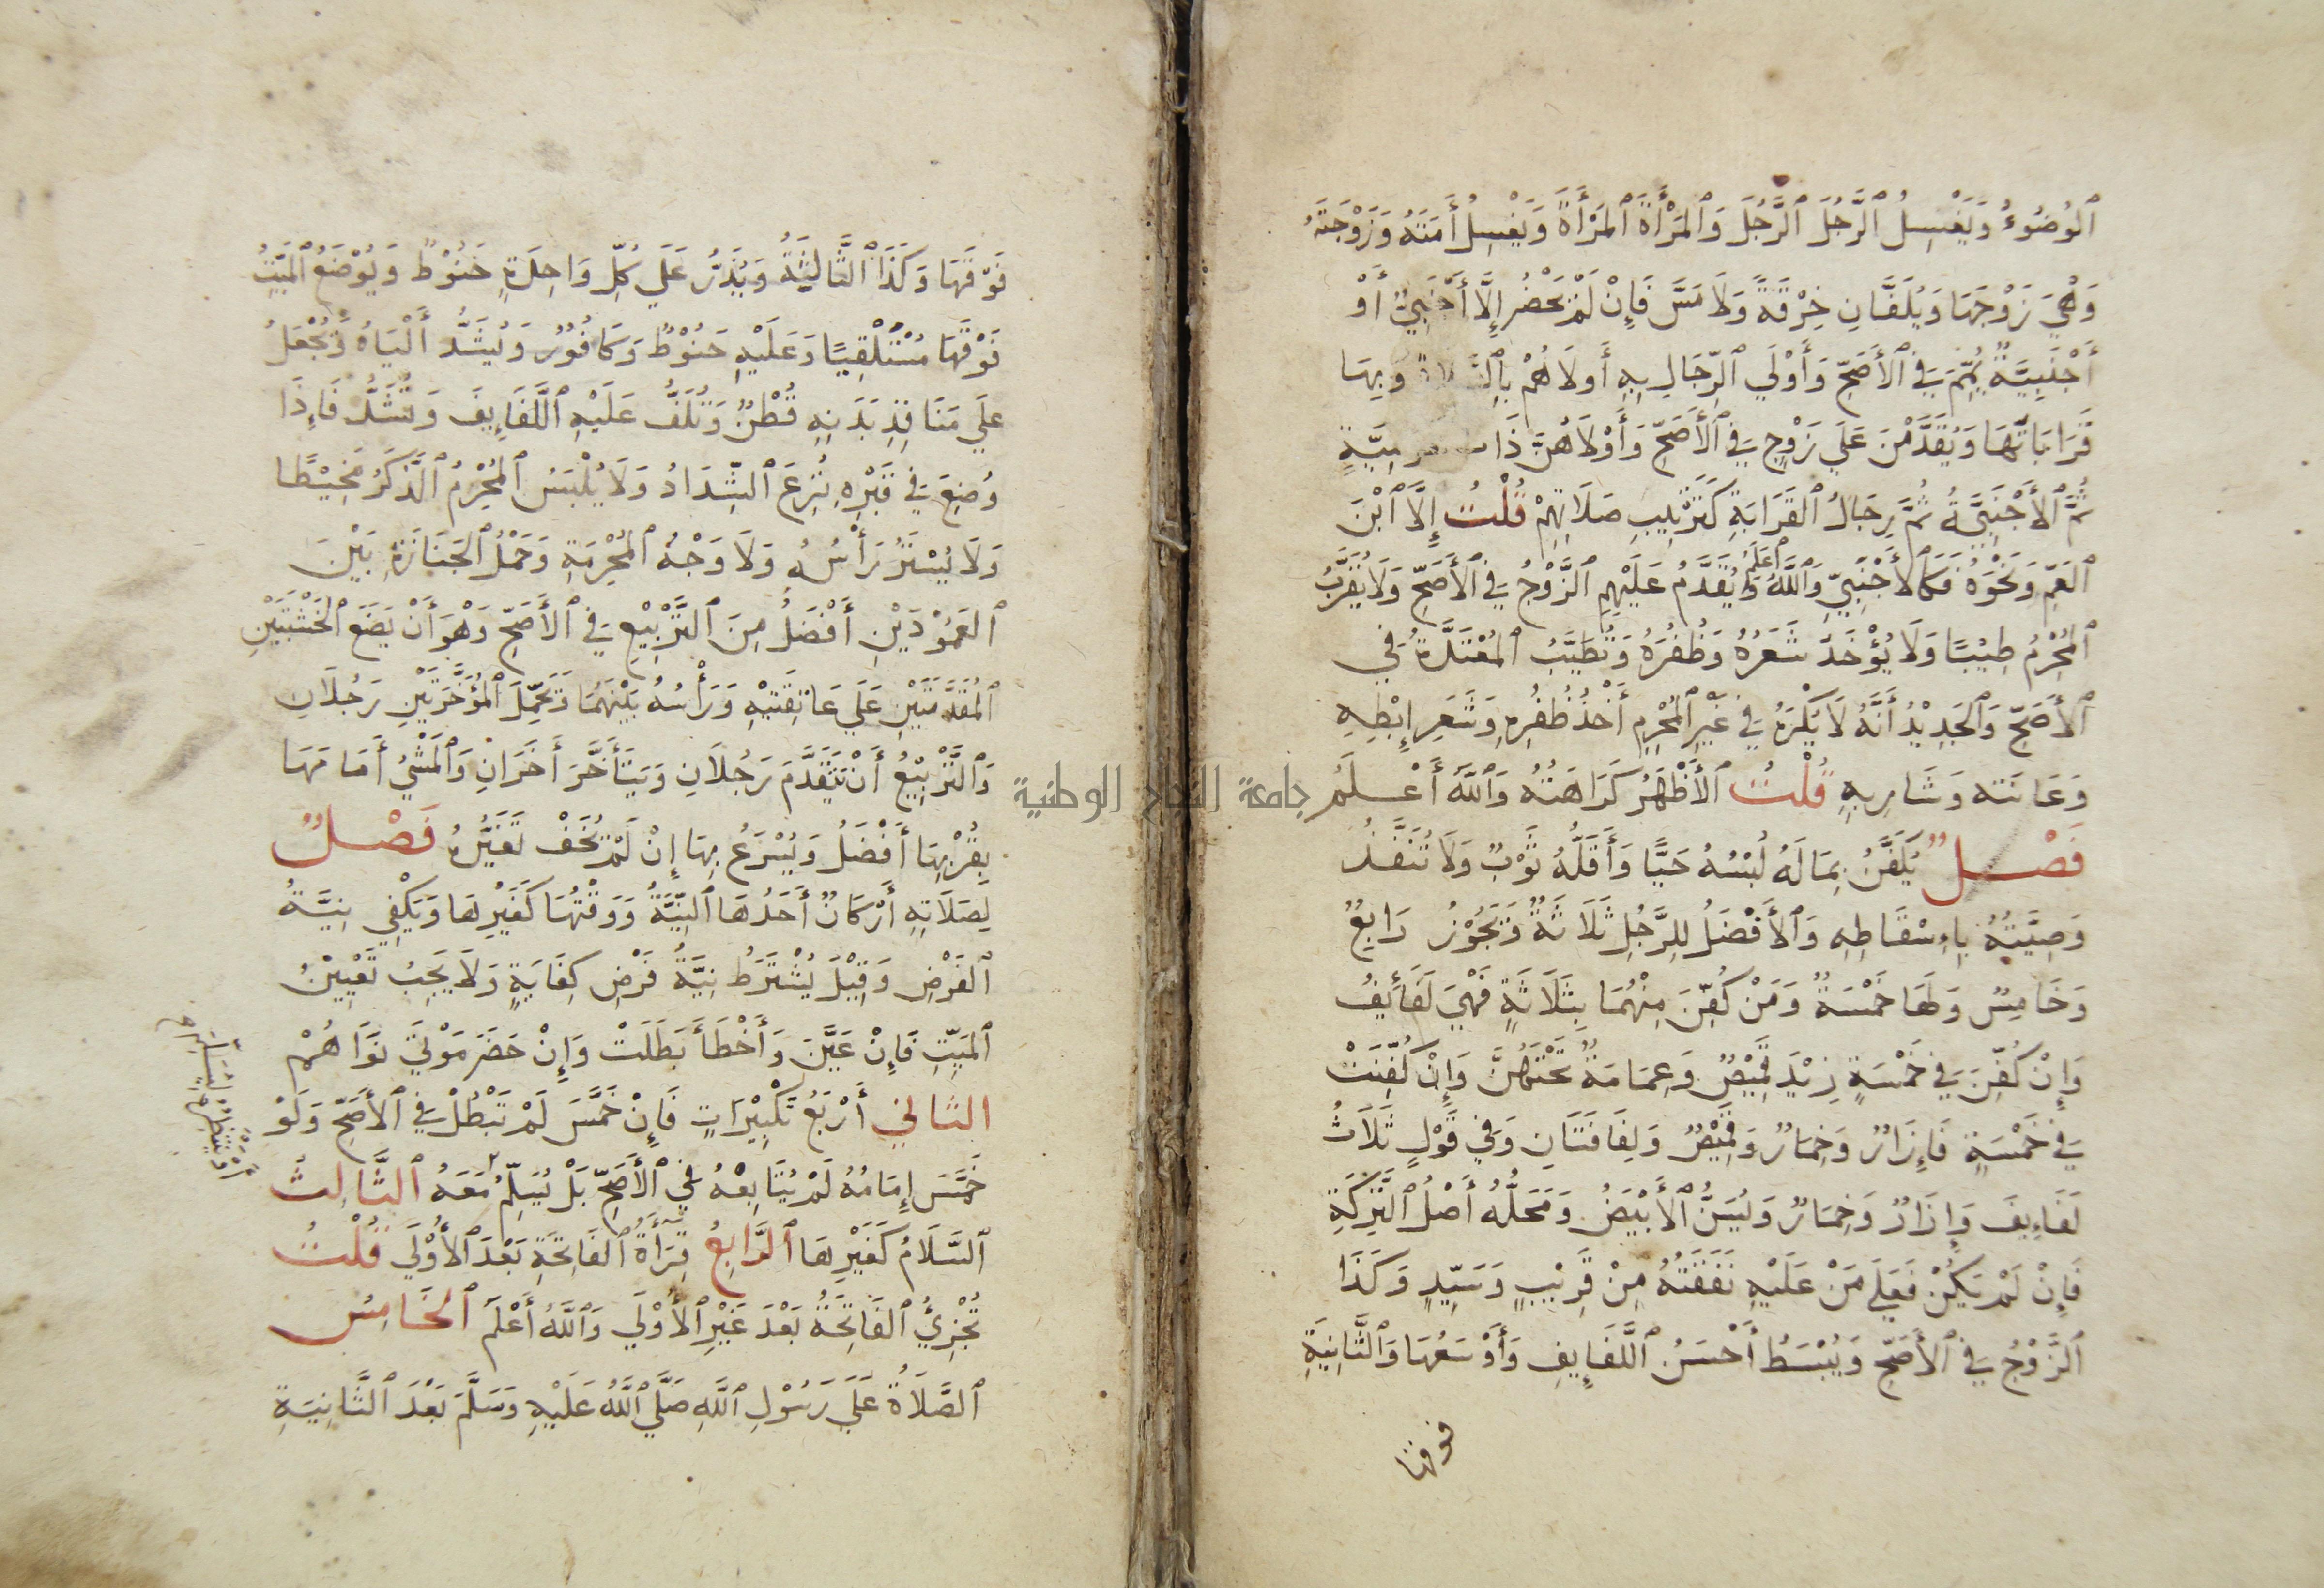 ٱلوُضُوءُ وَيَغْسِلُ ٱلرَّجُلَ ٱلرَّجُلَ وَٱلمَرْأَةَ ٱلمَرْأَةَ وَيَغْسِلُ أَمَتَهُ وَزَوْجَتَهُ
وَهْيَ زَوْجَهَا وَيُلَفَّانِ خِرْقَةً وَلَا مَسَّ فَإِنْ لَمْ يَحْضُر إِلَّا أَجْنَبِيٌّ أَوْ
أَجْنَبِيَّةٌ يُمِّمَ فِي ٱلأَصَحِّ وَأَوْلَي ٱلرِّجَالِ بِهِ أَولَاهُمْ وَبِهَا
قَرَابَاتُهَا وَيُقَدَّمْنَ عَلَي زَوْجٍ فِي ٱلأَصَحِّ وَأَوْلَاهُنَّ ذَات
ثُمَّ ٱلأَجْنَبِيَّةُ ثُمَّ رِجَالُ ٱلقَرَابَةِ كَتَرْتِيبِ صَلَاتِهِمْ قُلْتُ إِلَّا ٱبْنَ
ٱلعَمِّ وَنَحْوَهُ فَكَٱلأَجْنَبِيِّ وَٱللَّهُ أَعْلَمُ وَيُقَدَّمُ عَلَيْهِمِ ٱلزَّوْجُ فِي ٱلأَصَحِّ وَلَا يُقَرَّبُ
ٱلمُحْرِمُ طِيْبًا وَلَا يُؤْخَذُ شَعَرُهُ وَظُفُرُهُ وَتُطَيَّبُ ٱلمُعْتَدَّةُ فِي
ٱلأَصَحِّ وَٱلجَدِيْدُ أَنَّهُ لَا يُكْرَهُ فِي غَيْرِ ٱلمُحْرِمِ أَخْذُ ظُفُرِهِ وَشَعَرِ إِبْطِهِ
وَعَانَتِه وَشَارِبِهِ قُلْتُ ٱلأَظْهَرُ كَرَاهَتُهُ وَٱللَّهُ أَعْلَمُ
فَصْلٌ يُكَفَّنُ بِمَا لَهُ لُبْسُهُ حَيًّا وَأَقَلُّهُ ثَوْبٌ وَلَا تُنَفَّذُ
وَصِيَّتُهُ بِإِسْقَاطِهِ وَٱلأَفْضَلُ لِلرَّجُلِ ثَلَاثَةٌ وَيَجُوْزُ رَابِعٌ
وَخَامِسٌ وَلَهَا خَمْسَةٌ وَمَنْ كُفِّنَ مِنْهُمَا بِثَلَاثَةٍ فَهْيَ لَفَائِفُ
وَإِنْ كُفِّنَ فِي خَمْسَةٍ زِيْدَ قَمِيْصٌ وَعِمَامَةٌ تَحْتَهُنَّ وَإِنْ كُفِّنَتْ
فِي خَمْسَةٍ فَإِزَارٌ وَخِمَارٌ وَقَمِيْصٌ وَلِفَافَتَانِ وَفِي قَوْلٍ ثَلَاثُ
لَفَاءِيفَ وَإِزَارٌ وَخِمَارٌ وَيُسَنُّ ٱلأَبْيَضُ وَمَحَلُّهُ أَصْلُ ٱلتَّرِكَةِ
فَإِنْ لَمْ يَكُنْ فَعَلَي مَنْ عَلَيْهِ نَفَقَتُهُ مِنْ قَرِيْبٍ وَسَيِّدٍ وَكَذَا
ٱلزَّوْجُ فِي ٱلأَصَحِّ وَيُبْسَطُ أَحْسَنُ ٱللَّفَايِفِ وَأَوْسَعُهَا وَٱلثَّانِيَةِ
فوقها
فَوْقَهَا وَكَذَا ٱلثَّالِثَةُ وَيُذَرُّ عَلَي كُلِّ وَاحِدَةٍ حَنُوْطٌ وَيُوْضَعُ ٱلمَيِّتُ
فَوْقَهَا مُسْتَلْقِيًا وَعَلَيْهِ حَنُوْطٌ وَكَافُوْرٌ وَيُشَدُّ أَلْيَاهُ وَيُجْعَلُ
عَلَي مَنَافِذِ بَدَنِهِ قُطْنٌ وَتُلَفُّ عَلَيْهِ ٱللَّفَايِفَ وَتُشَدُّ فَإِذَا
وُضِعَ فِي قَبْرِهِ نُزِعَ ٱلشِّدَادُ وَلَا يُلْبَسُ ٱلمُحْرِمُ ٱلذَّكَرُ مَخِيْطًا
وَلَا يُسْتَرُ رَأْسُهُ وَلَا وَجْهُ ٱلمُحْرِمَةِ وَحَمْلُ ٱلجَنَازَةِ بَيْنَ
ٱلعَمُوْدَيْنِ أَفْضَلُ مِنَ ٱلتَّرْبِيْعِ فِي ٱلأَصَحِّ وَهْوَ أَنْ يَضَعَ ٱلخَشَبَتَيْنِ
ٱلمُقَدَّمَتَيْنِ عَلَي عَاتِقَيْهِ وَرَأْسُهُ بَيْنَهُمَا وَيَحْمِلَ ٱلمُؤَخَّرَتَيْنِ رَجُلَانِ
وَٱلتَّرْبِيْعُ أَنْ يَتَقَدَّمَ رَجُلَانِ وَيَتَأَخَّرَ أَخَرَانِ وَٱلمَشْيُ أَمَامَهَا
بِقُرْبِهَا أَفْضَلُ وَيُسْرَعُ بِهَا إِنْ لَمْ يُخَفْ تَغَيُّرُهُ فَصْلٌ
لِصَلَاتِهِ أَرْكَانٌ أَحَدُهَا ٱلنِّيَّةُ وَوَقْتُهَا كَغَيْرِهَا وَيَكْفِي نِيَّةُ
ٱلفَرْضِ وَقِيْلَ يُشْتَرَطُ نِيَّةُ فَرْضِ كِفَايَةٍ وَلَا يَجِبُ تَعْيِيْنُ
ٱلمَيِّتِ فَإِنْ عَيَّنَ وَأَخْطَأَ بَطَلَتْ وَإِنْ حَضَرَ مَوْتَي نَوَاهُمْ
الثاني أَرْبَعُ تَكْبِيْرَاتٍ فَإِنْ خَمَّسَ لَمْ تَبْطُلْ فِي ٱلأَصَحِّ وَلَوْ
خَمَّسَ إِمَامُهُ لَمْ يُتَابِعْهُ فِي ٱلأَصَحِّ بَلْ يُسَلِّمُ مَعَهُ ٱلثَّالِثُ
ٱلسَّلَامُ كَغَيْرِهَا ٱلرَّابِعُ قِرَأَةُ ٱلفَاتِحَةِ بَعْدَ ٱلأُوْلَي قُلْتُ
تُجْزِئُ ٱلفَاتِحَةُ بَعْدَ غَيْرِ ٱلأُوْلَي وَٱللَّهُ أَعْلَمُ ٱلخَامِسُ
ٱلصَّلَاةُ عَلَي رَسُوْلِ ٱللَّهِ صَلَّي ٱللَّهُ عَلَيْهِ وَسَلَّمَ بَعْدَ ٱلثَّانِيَةِ
جامعة النجاح الوطنية